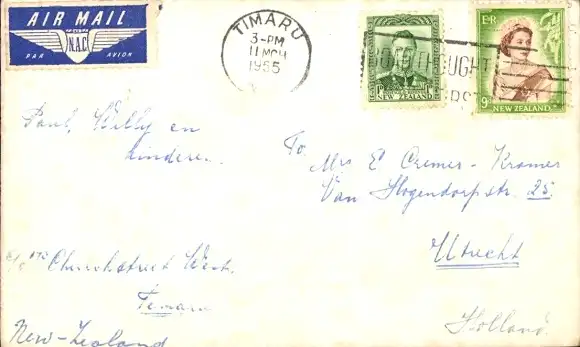 AIR MAIL
N.A.C.
PAR AVION
TIMARU
3-PM
11 MCH
1955
1D
NEW ZEALAND
E R
9D
NEW ZEALAND
THOUGHT
Paul, Willy en
kinderen.
To
Mrs E Cremer-Kramer
Van Hogendorpstr. 25
Utrecht
Holland.
Churchstreet West.
Timaru
New-Zealand